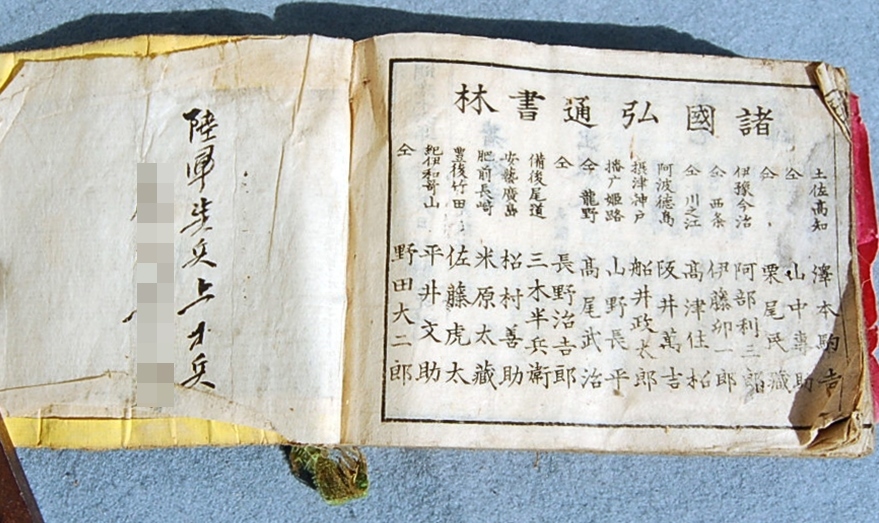 諸國弘通書林
土佐高知 澤本駒吉
仝 山中專助
仝 栗尾民藏
伊豫今治 阿部利三郎
仝 西条 伊藤卯一郎
仝 川之江 髙津住枩
阿波徳島 阪井萬吉
摂津神戸 船井政太郎
播广姫路 山野長平
仝 龍野 髙尾武治
仝 長野治吉郎
備後尾道 三木半兵衛
安藝廣島 松村善助
肥前長崎 米原太藏
豊後竹田 佐藤虎太
紀伊和哥山 平井文助
仝 野田大二郎
陸軍歩兵上等兵